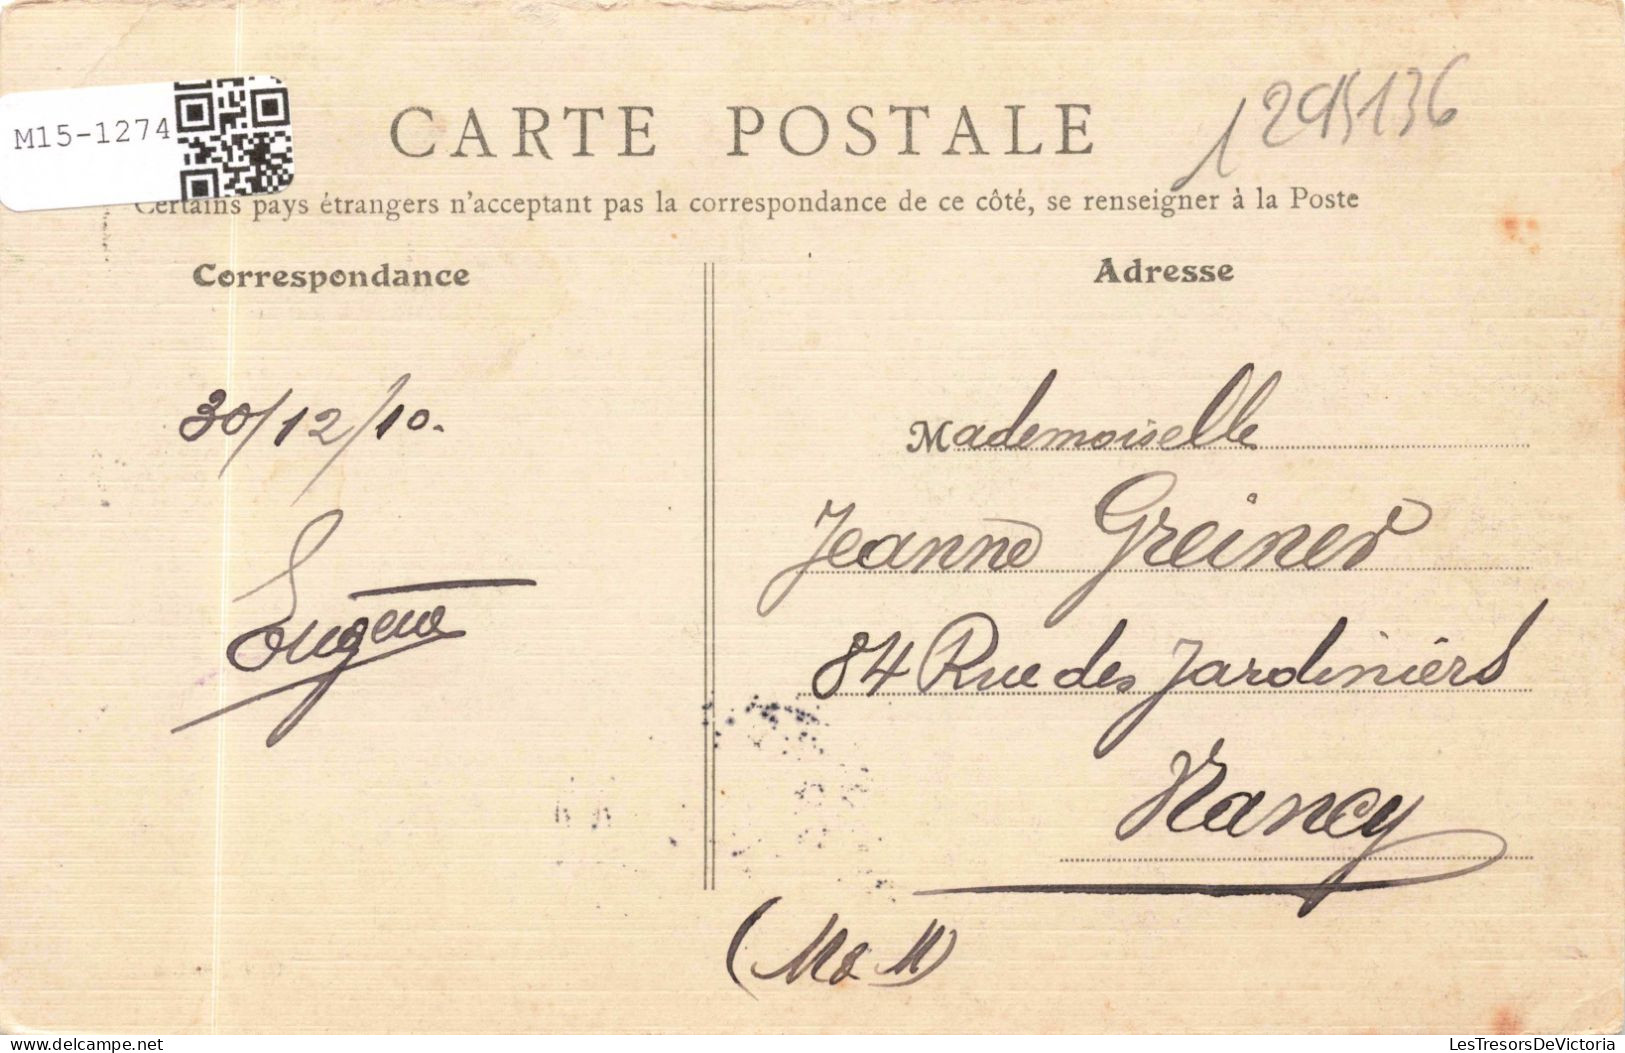 M15-1274
CARTE POSTALE
295136
Certains pays étrangers n'acceptant pas la correspondance de ce côté, se renseigner à la Poste
Correspondance
Adresse
30/12/10.
Eugène
Mademoiselle
Jeanne Greiner
84 Rue des Jardiniers
Nancy
(M & M)
LesTresorsDeVictoria